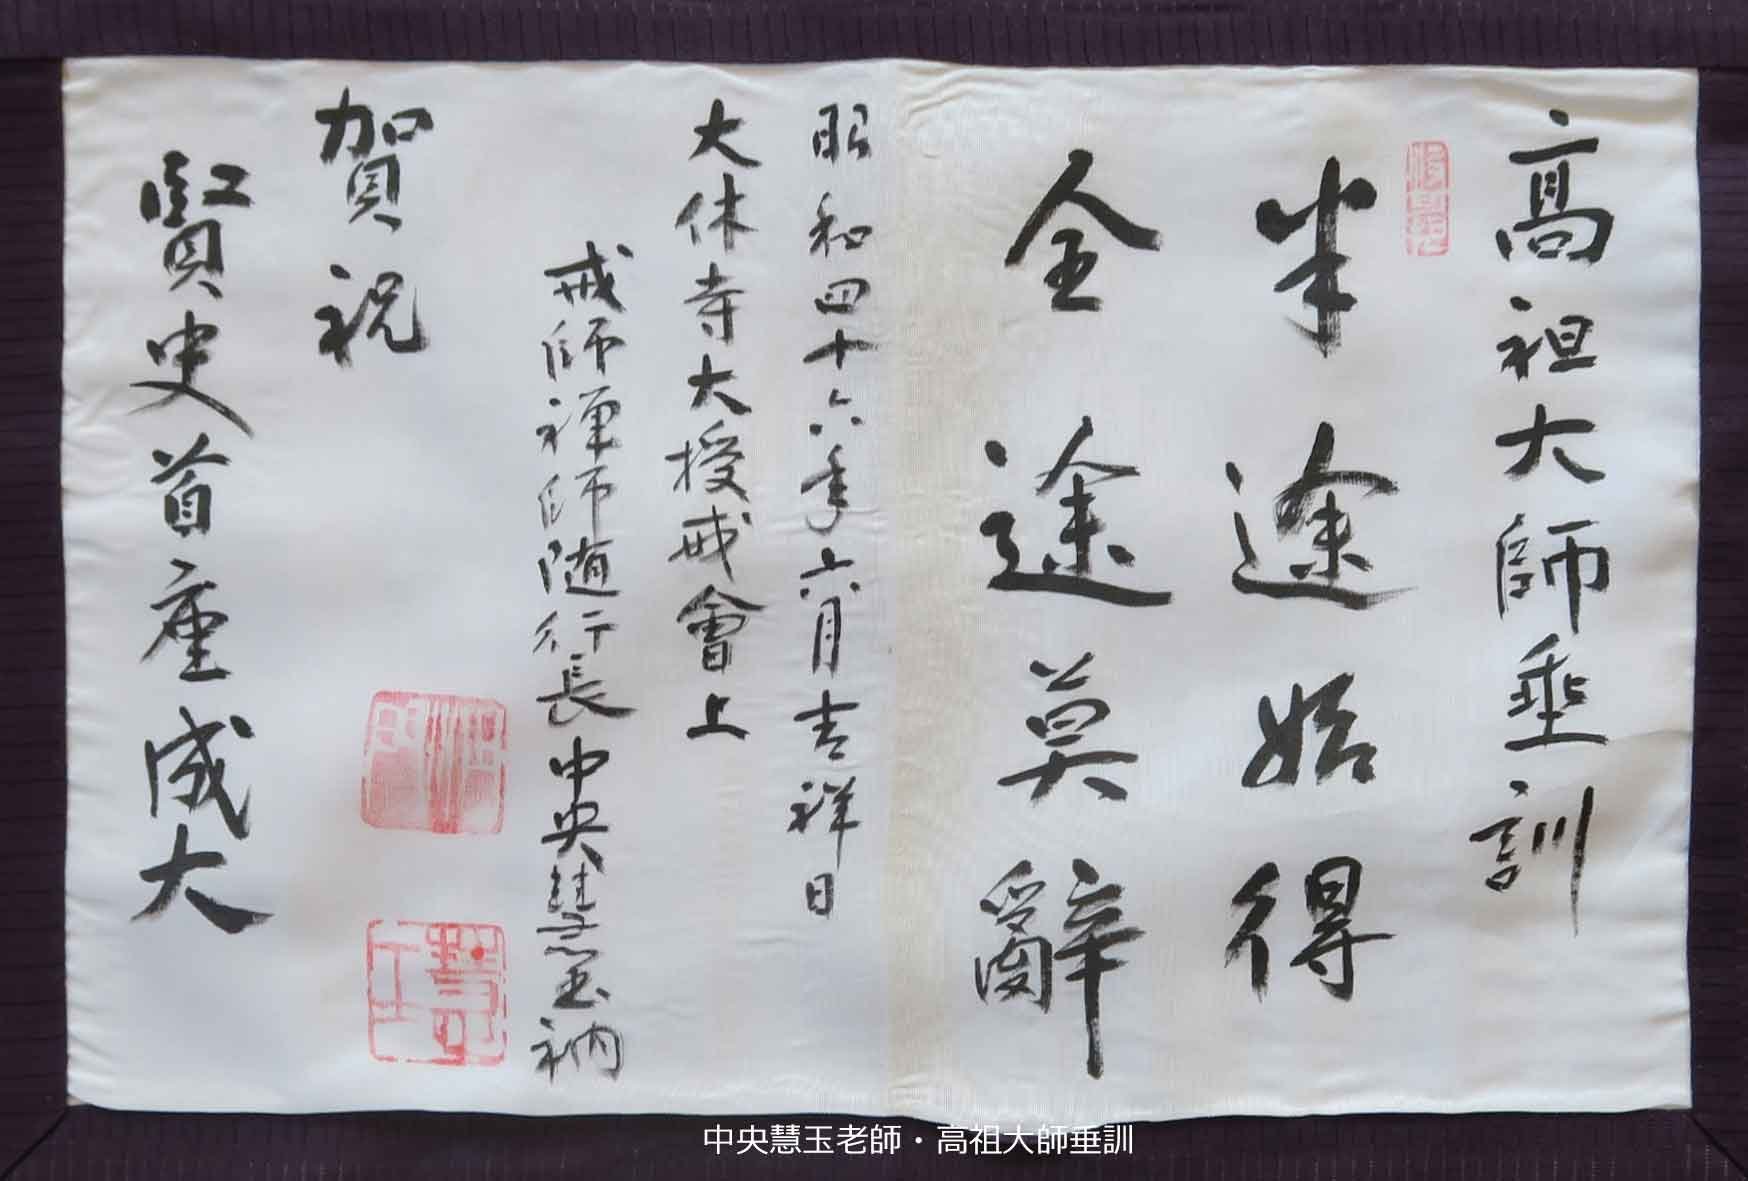 高祖大師垂訓
半途始得
全途莫辭
昭和四十六年六月吉祥日
大休寺大授戒會上
戒師禅師随行長中央慧玉衲
賀祝
賢史首座成大
中央慧玉老師・高祖大師垂訓